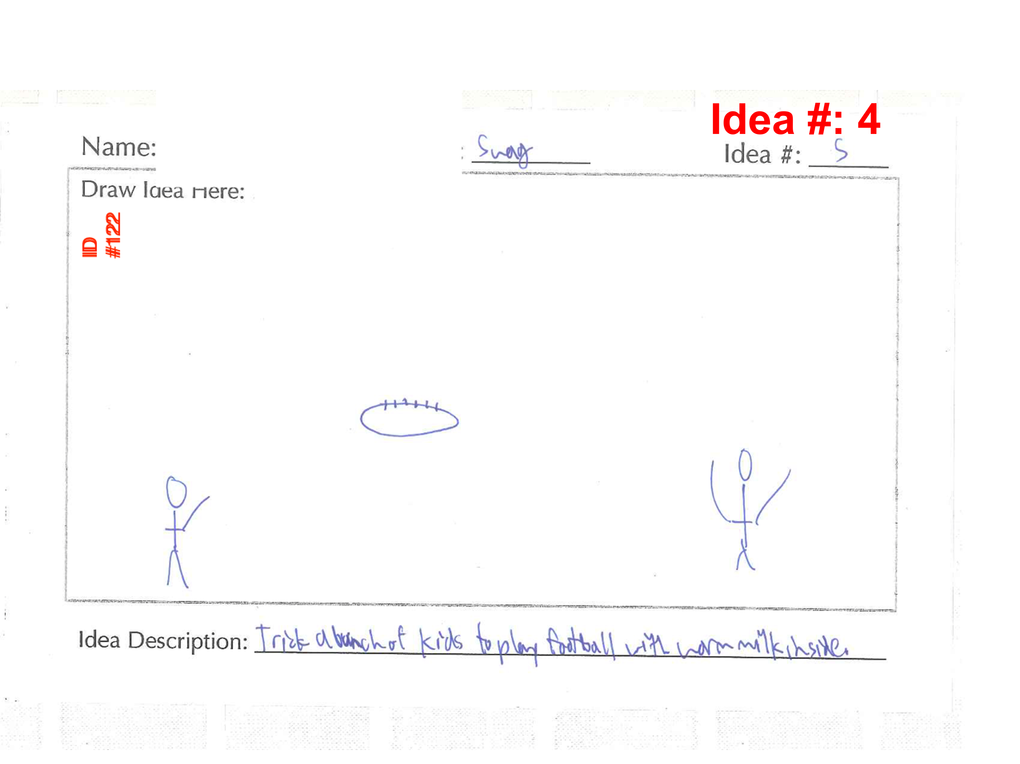 Idea #: 4
Name: : Swag Idea #: 5
Draw Idea Here:
IID
#122
Idea Description: Trick a bunch of kids to play football with warm milk inside.